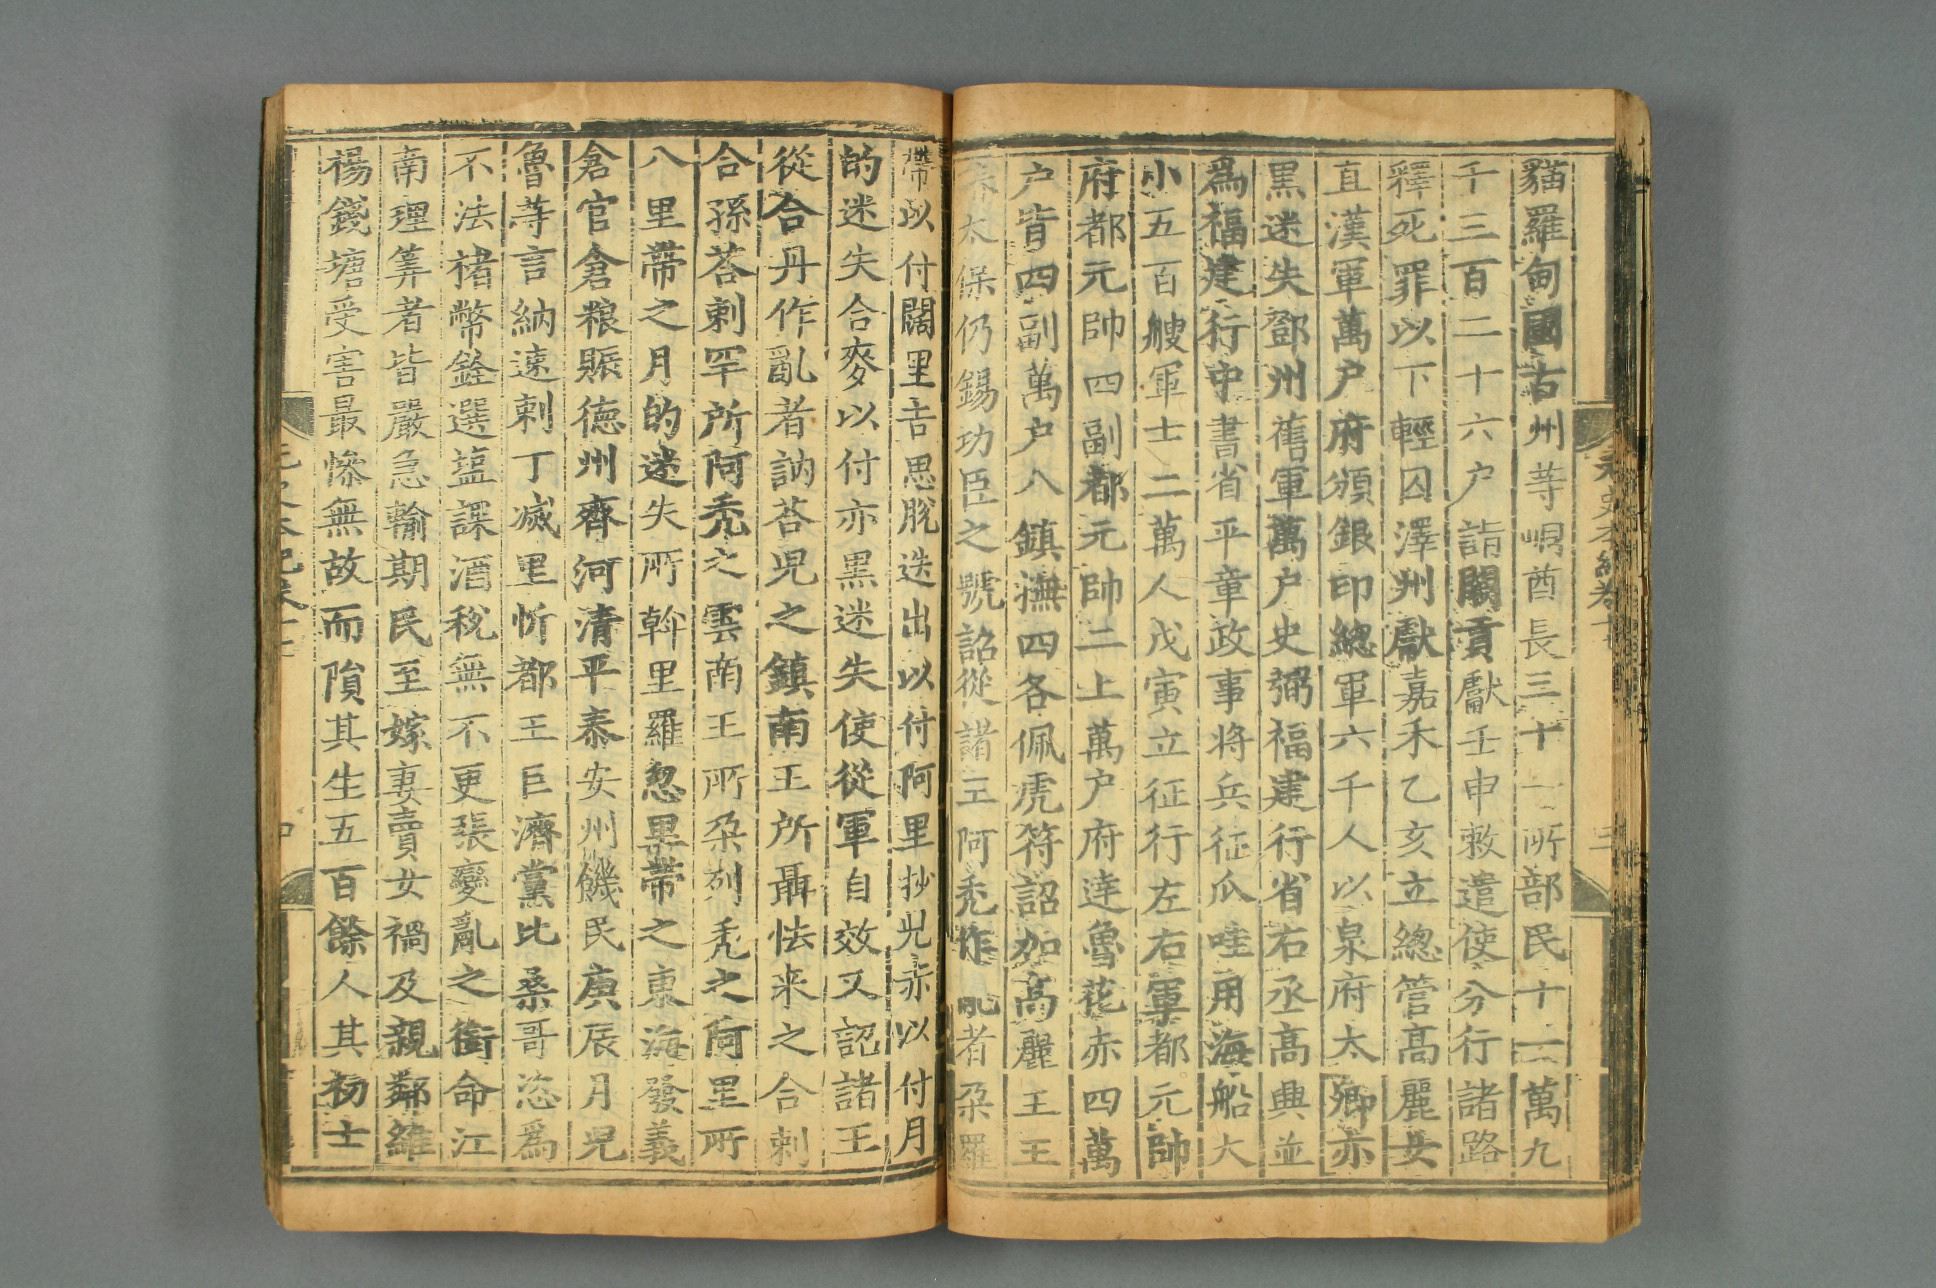 貓羅甸國古州等峒酋長三十一所部民十二萬九
千三百二十六户詣闕貢獻壬申敕遣使分行諸路
釋死罪以下輕囚澤州獻嘉禾乙亥立總管髙麗女
直漢軍萬户府頒銀印總軍六千人以泉府太卿亦
黒迷失鄧州舊軍萬户史弼福建行省右丞髙興並
爲福建行中書省平章政事将兵征瓜哇用海船大
小五百艘軍士二萬人戊寅立征行左右軍都元帥
府都元帥四副都元帥二上萬户府達魯花赤四萬
户肯四副萬户八鎮撫四各佩虎符詔加髙麗王王
太保仍錫功臣之號詔從諸王阿秃作亂者朶羅
帶以付闊里吉思脫迭出以付阿里抄兒赤以付月
的迷失合麥以付亦黒迷失使從軍自效又詔諸王
從合丹作亂者訥荅兒之鎮南王所聶怯来之合剌
合孫荅剌罕所阿秃之雲南王所朶列秃之阿里所
八里帶之月的迷失所斡里羅忽里帶之東海發義
倉官倉粮賑德州齊河清平泰安州饑民庚辰月兒
魯等言納速剌丁滅里忻都王巨濟黨比桑哥恣為
不法楮幣銓選塩課酒税無不更張變亂之銜命江
南理筭者皆嚴急輸期民至嫁妻賣女禍及親鄰維
楊錢塘受害最慘無故而隕其生五百餘人其初士